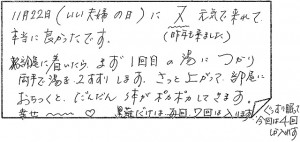 11月22日(いい夫婦の日)に又元気で来れて
(昨年も来ました)
本当に良かったです。
部屋に着いたら、まず1回目の湯につかり
両手で湯を2すすりします。さっと上がって、部屋に
おちつくと、だんだん体がポカポカしてきます。
幸せ〜〜〜♡
毎回、7回は入ります
ぐっすり眠って
今回は4回